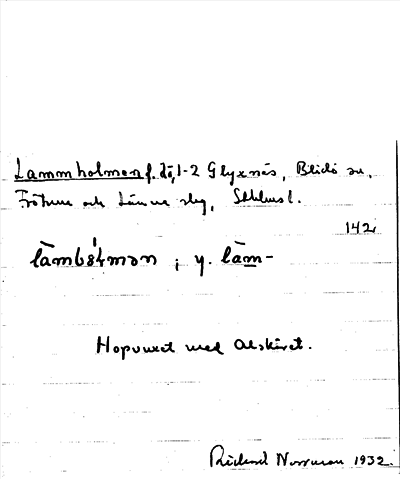 Lammholmen f. dö, 1-2 Glyxnäs, Blidö sn,
Frötuna och Länna slg, Sthlms l.
142
; y. läm-
Hopvuxet med Alskäret.
Rickard Norrman 1932.